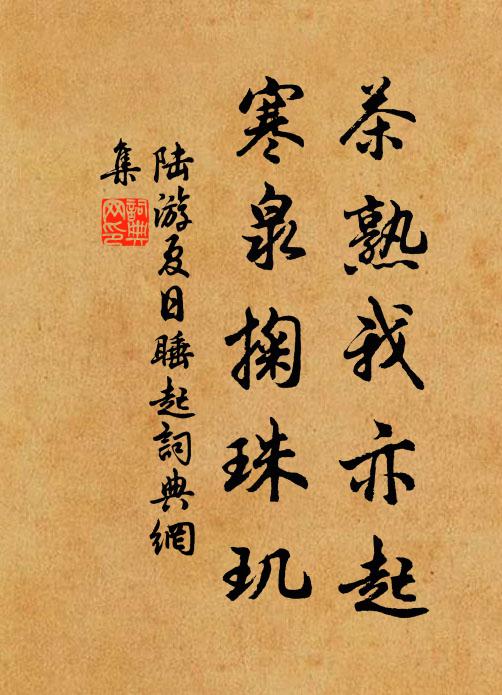 茶熟我亦起
寒泉掬珠玑
陆游夏日睡起詞典網
集
詞典网印